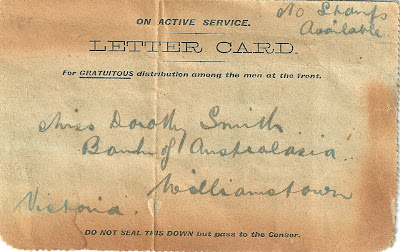 No Stamps
Available
ON ACTIVE SERVICE.
LETTER CARD.
For GRATUITOUS distribution among the men at the front.
Miss Dorothy Smith
Bank of Australasia.
Williamstown
Victoria.
DO NOT SEAL THIS DOWN but pass to the Censor.